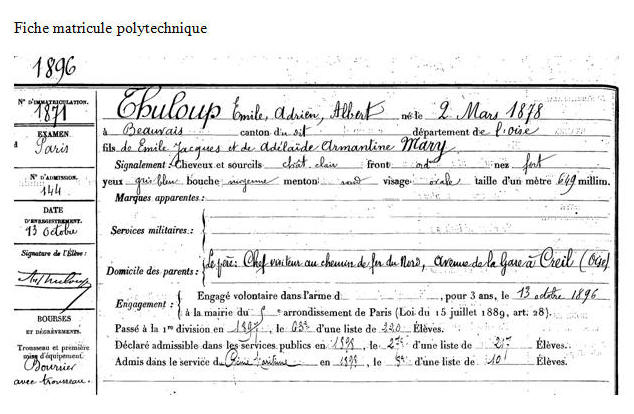 Fiche matricule polytechnique
1896
N° D'IMMATRICULATION.
1871
EXAMEN
à Paris
N° D'ADMISSION.
144
DATE
D'ENREGISTREMENT.
13 octobre
Signature de l'Élève :
BOURSES
ET DÉGRÈVEMENTS.
Trousseau et première
mise d'équipement.
Boursier
avec trousseau.
Thuloup Emile, Adrien, Albert né le 2 Mars 1878
à Beauvais canton du dit département de l'Oise
fils de Emile Jacques et de Adélaïde Armantine Mary
Signalement : Cheveux et sourcils chât. clair front ord nez fort
yeux gris bleu bouche moyenne menton rond visage ovale taille d'un mètre 649 millim.
Marques apparentes :
Services militaires :
Domicile des parents : Le père : Chef visiteur au chemin de fer du Nord, avenue de la Gare à Creil (Oise)
Engagement : Engagé volontaire dans l'arme d , pour 3 ans, le 13 octobre 1896
à la mairie du 5e arrondissement de Paris (Loi du 15 juillet 1889, art. 28).
Passé à la 1re division en 1897, le 63e d'une liste de 220 Élèves.
Déclaré admissible dans les services publics en 1898, le d'une liste de 217 Élèves.
Admis dans le service du Génie Maritime en 1898, le d'une liste de 10 Élèves.